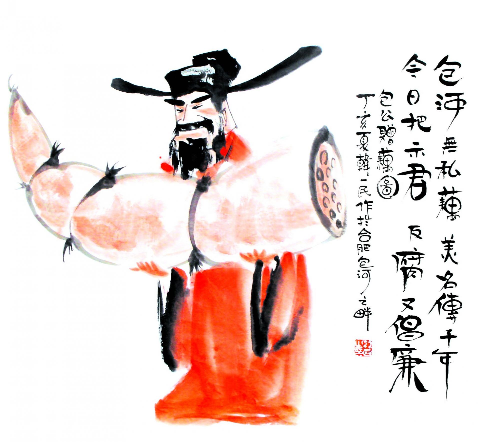 包河无私藕 美名傳千年
今日把示君 反腐又倡廉
包公贈藕圖
丁亥夏韓一民作於合肥包河之畔